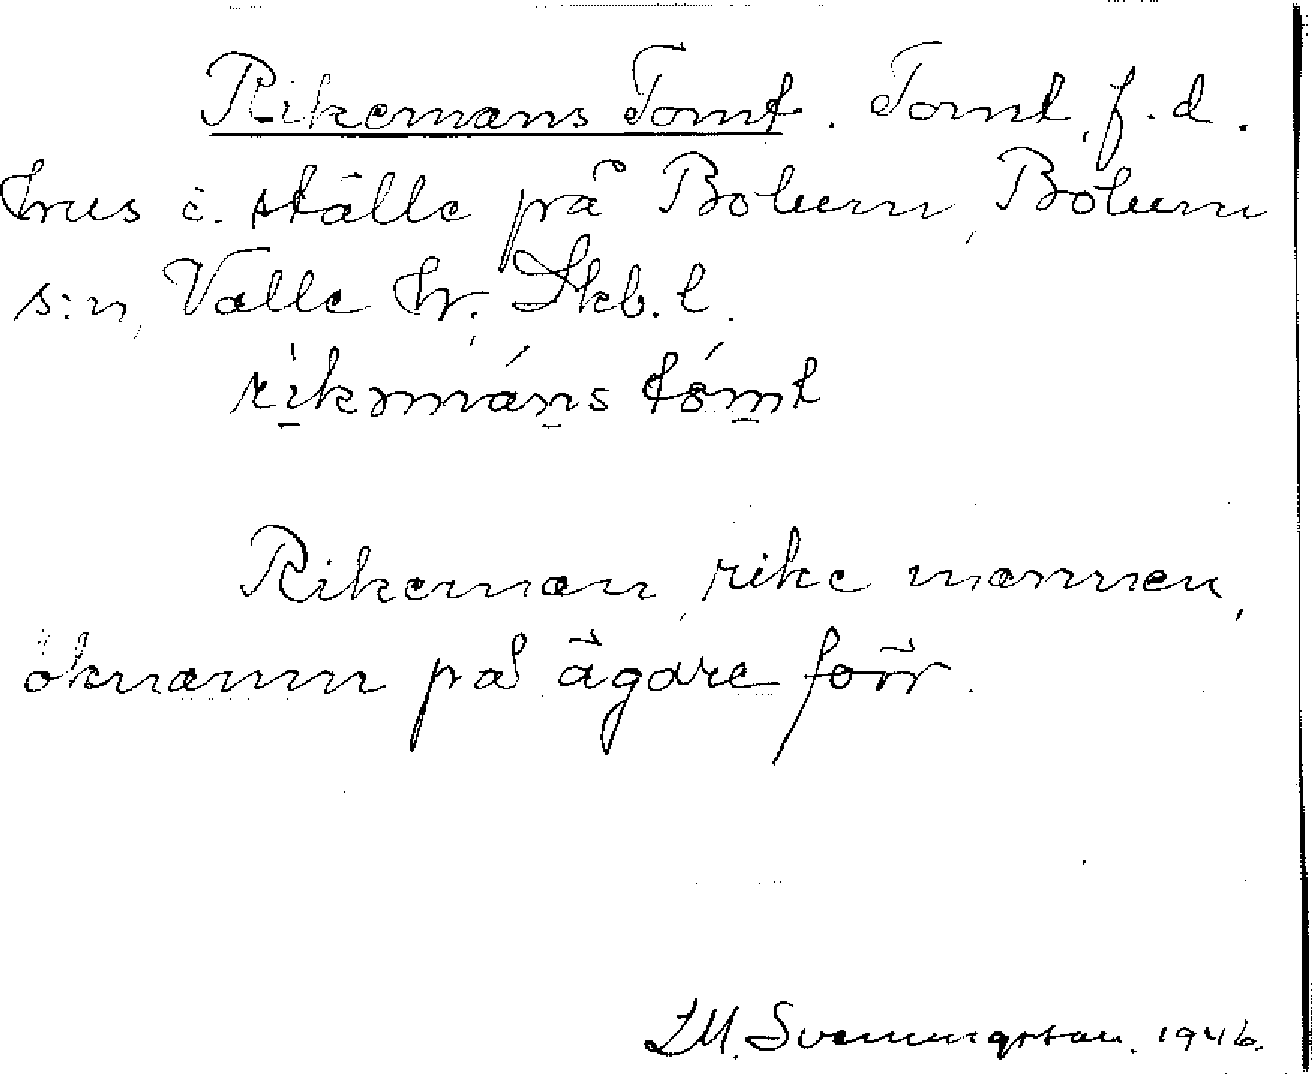 Rikemans Tomt. Tomt, f.d.
hus o. ställe på Bolum, Bolum
s:n, Valle hr, Skb. l.
rikəmáns tómt
Rikeman, rike mannen,
öknamn på ägare förr.
LM. Svenungsson. 1946.